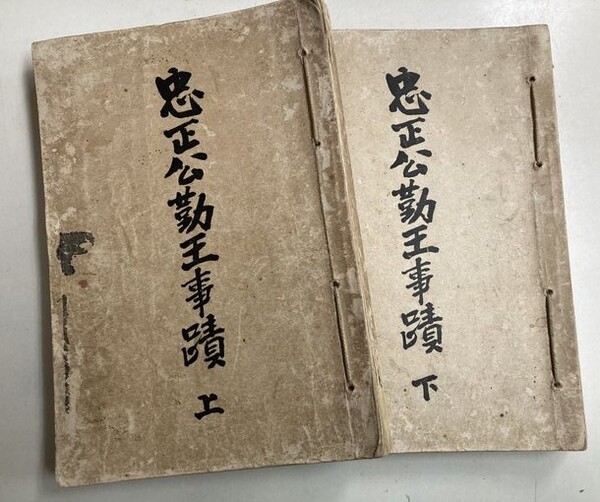 忠正公勤王事蹟
上
忠正公勤王事蹟
下